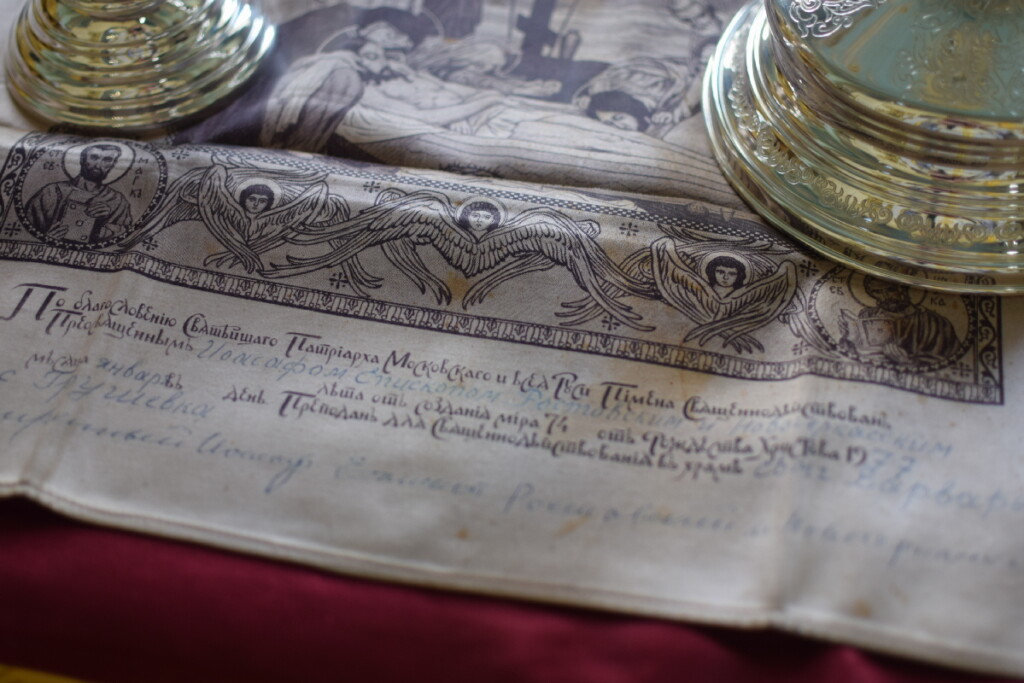 По благословению Святѣйшаго Патрїарха Московскаго и всеѧ Руси Пімена Священнодѣйствованъ
Преосвященнымъ Иоасафом Епископом Ростовским и Новочеркасским
мѣсяца январѧ день лѣта отъ созданїѧ міра 74 отъ Рождества Христова 19 77
Преподанъ для священнодѣйствованїѧ въ храмѣ Варвары
с Грушевка
Иоасаф Епископ Ростовский и